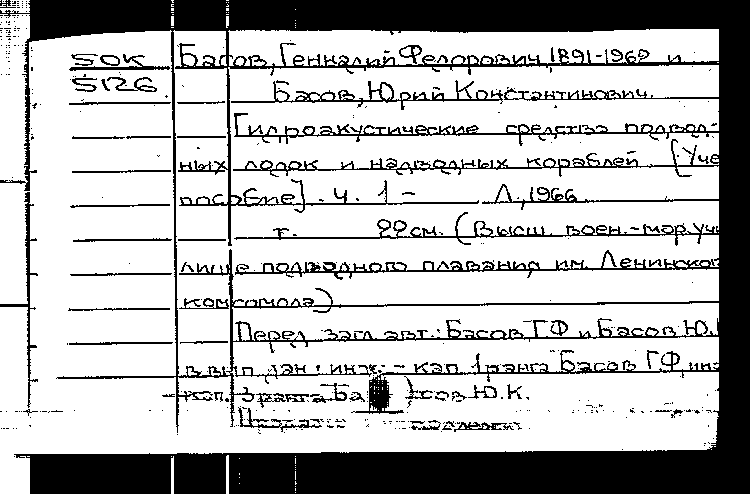 50К Басов, Геннадий Федорович, 1891-1962 и
5126. Басов, Юрий Константинович.
Гидроакустические средства подвод-
ных лодок и надводных кораблей [Уче
пособие]. Ч. 1 - Л., 1966
т. 22 см. (Высш. воен.-мор. учи
лище подводного плавания им. Ленинског
комсомола)
Перед загл. авт.: Басов Г.Ф и Басов Ю.
в вып. дан: инж. - кап. 1 ранга Басов Г.Ф, инж
кап. 3 ранга Басов Ю.К.